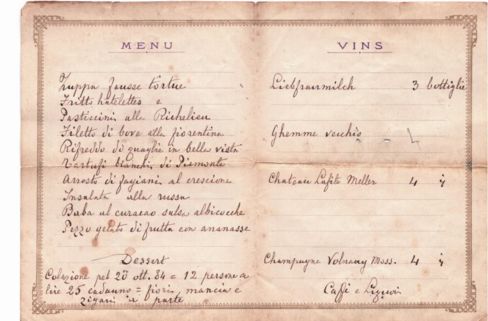 MENU
Zuppa fausse tortue
Fritto hatelettes e
Pasticcini alla Richelieu
Filetto di bove alla fiorentina
Rifreddo di quaglie in bella vista
Tartufi bianchi di Piemonte
Arrosto di fagiani al crescione
Insalata alla russa
Baba al curacao salsa albicocche
Pezzo gelato di frutta con ananasse
Dessert
Colazione pel 20 ott. 34 = 12 persone a
lire 25 caduno = fiori, mancia e
zigari a parte
VINS
Liebfraumilch 3 bottiglie
Ghemme vecchio 4
Chateau Lafite Meller 4 "
Champagne Volnay Mous. 4 "
Caffè e Liquori